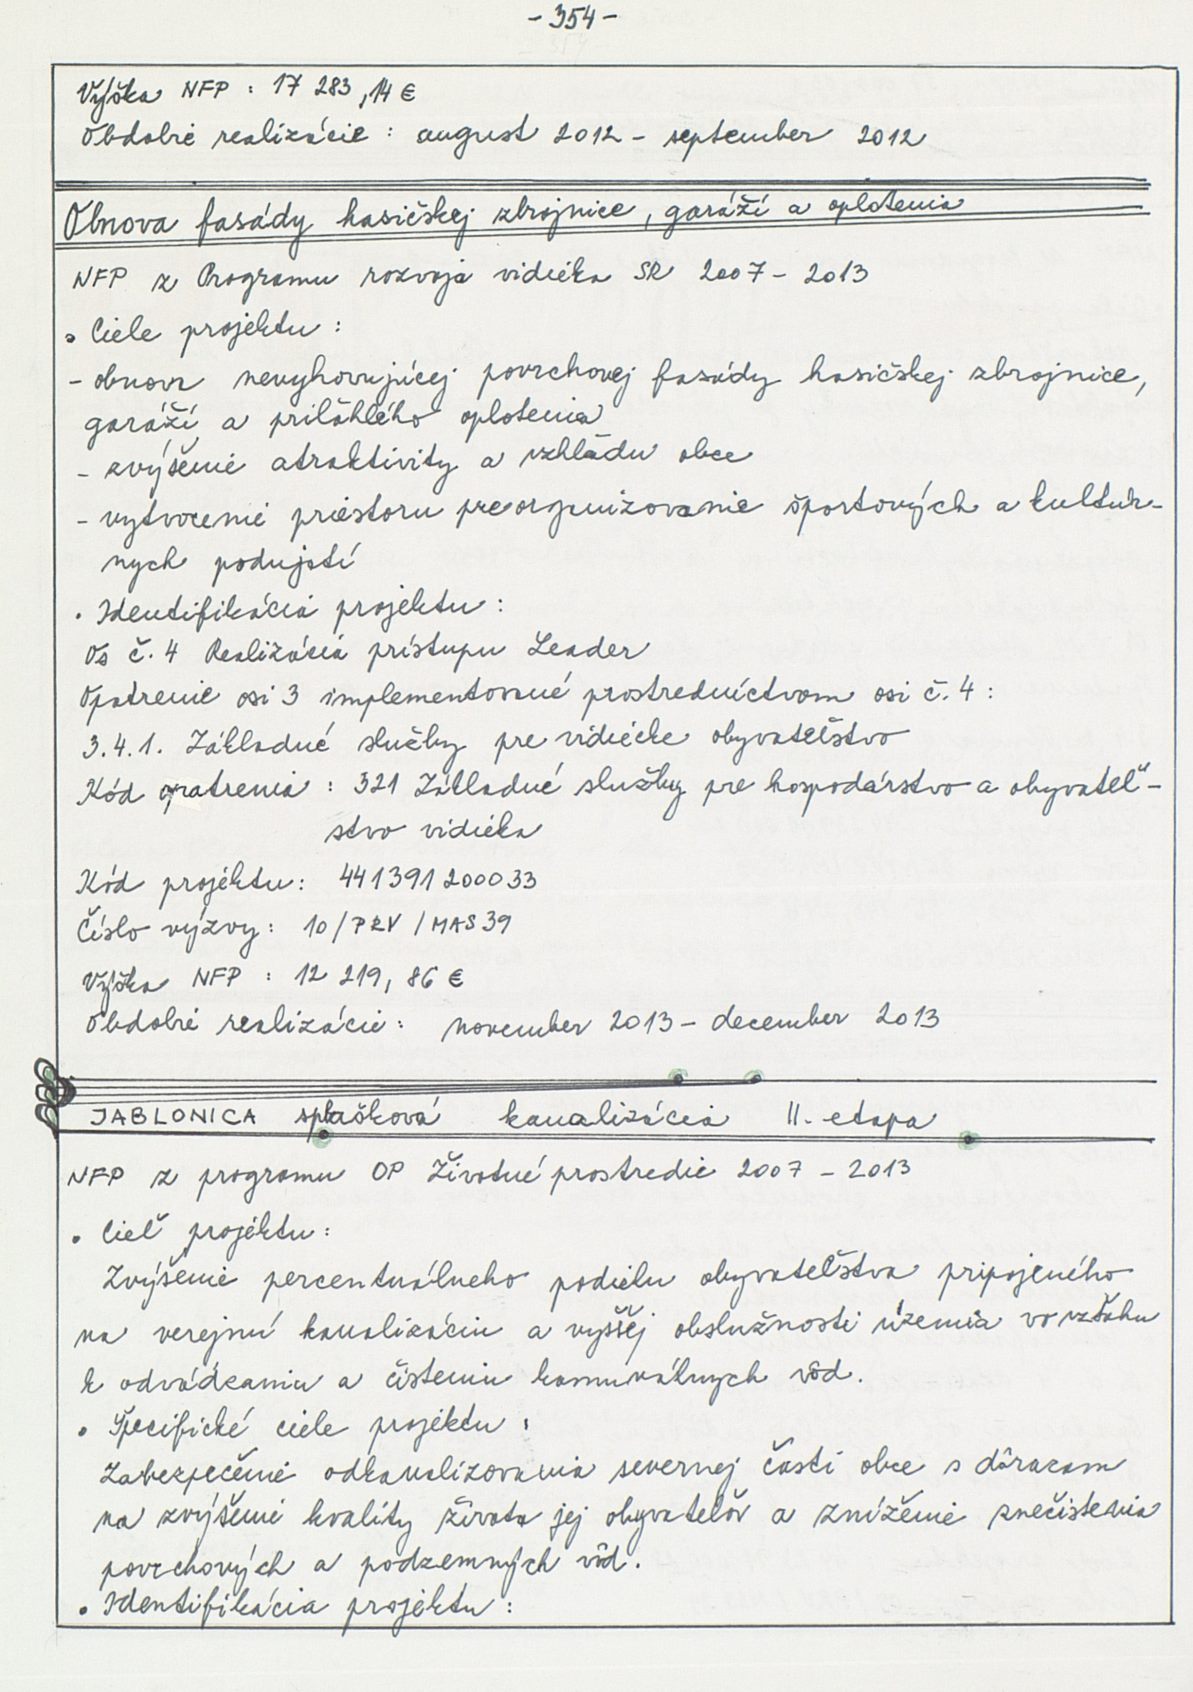 - 354 -
Výška NFP : 17 283,14 €
Obdobie realizácie : august 2012 - september 2012
Obnova fasády hasičskej zbrojnice, garáží a oplotenia
NFP z Programu rozvoja vidieka SR 2007 - 2013
• Ciele projektu :
- obnova nevyhovujúcej povrchovej fasády hasičskej zbrojnice,
garáží a priľahlého oplotenia
- zvýšenie atraktivity a vzhľadu obce
- vytvorenie priestoru pre organizovanie športových a kultúr-
nych podujatí
• Identifikácia projektu :
Os č. 4 Realizácia prístupu Leader
Opatrenie osi 3 implementované prostredníctvom osi č. 4 :
3.4.1. Základné služby pre vidiecke obyvateľstvo
Kód opatrenia : 321 Základné služby pre hospodárstvo a obyvateľ-
stvo vidieka
Kód projektu : 441391200033
Číslo výzvy : 10/PRV/MAS39
Výška NFP : 12 219,86 €
Obdobie realizácie : november 2013 - december 2013
JABLONICA splašková kanalizácia II. etapa
NFP z programu OP Životné prostredie 2007 - 2013
• Cieľ projektu :
Zvýšenie percentuálneho podielu obyvateľstva pripojeného
na verejnú kanalizáciu a vyššej obslužnosti územia vo vzťahu
k odvádzaniu a čisteniu komunálnych vôd.
• Špecifické ciele projektu :
Zabezpečenie odkanalizovania severnej časti obce s dôrazom
na zvýšenie kvality života jej obyvateľov a zníženie znečistenia
povrchových a podzemných vôd.
• Identifikácia projektu :